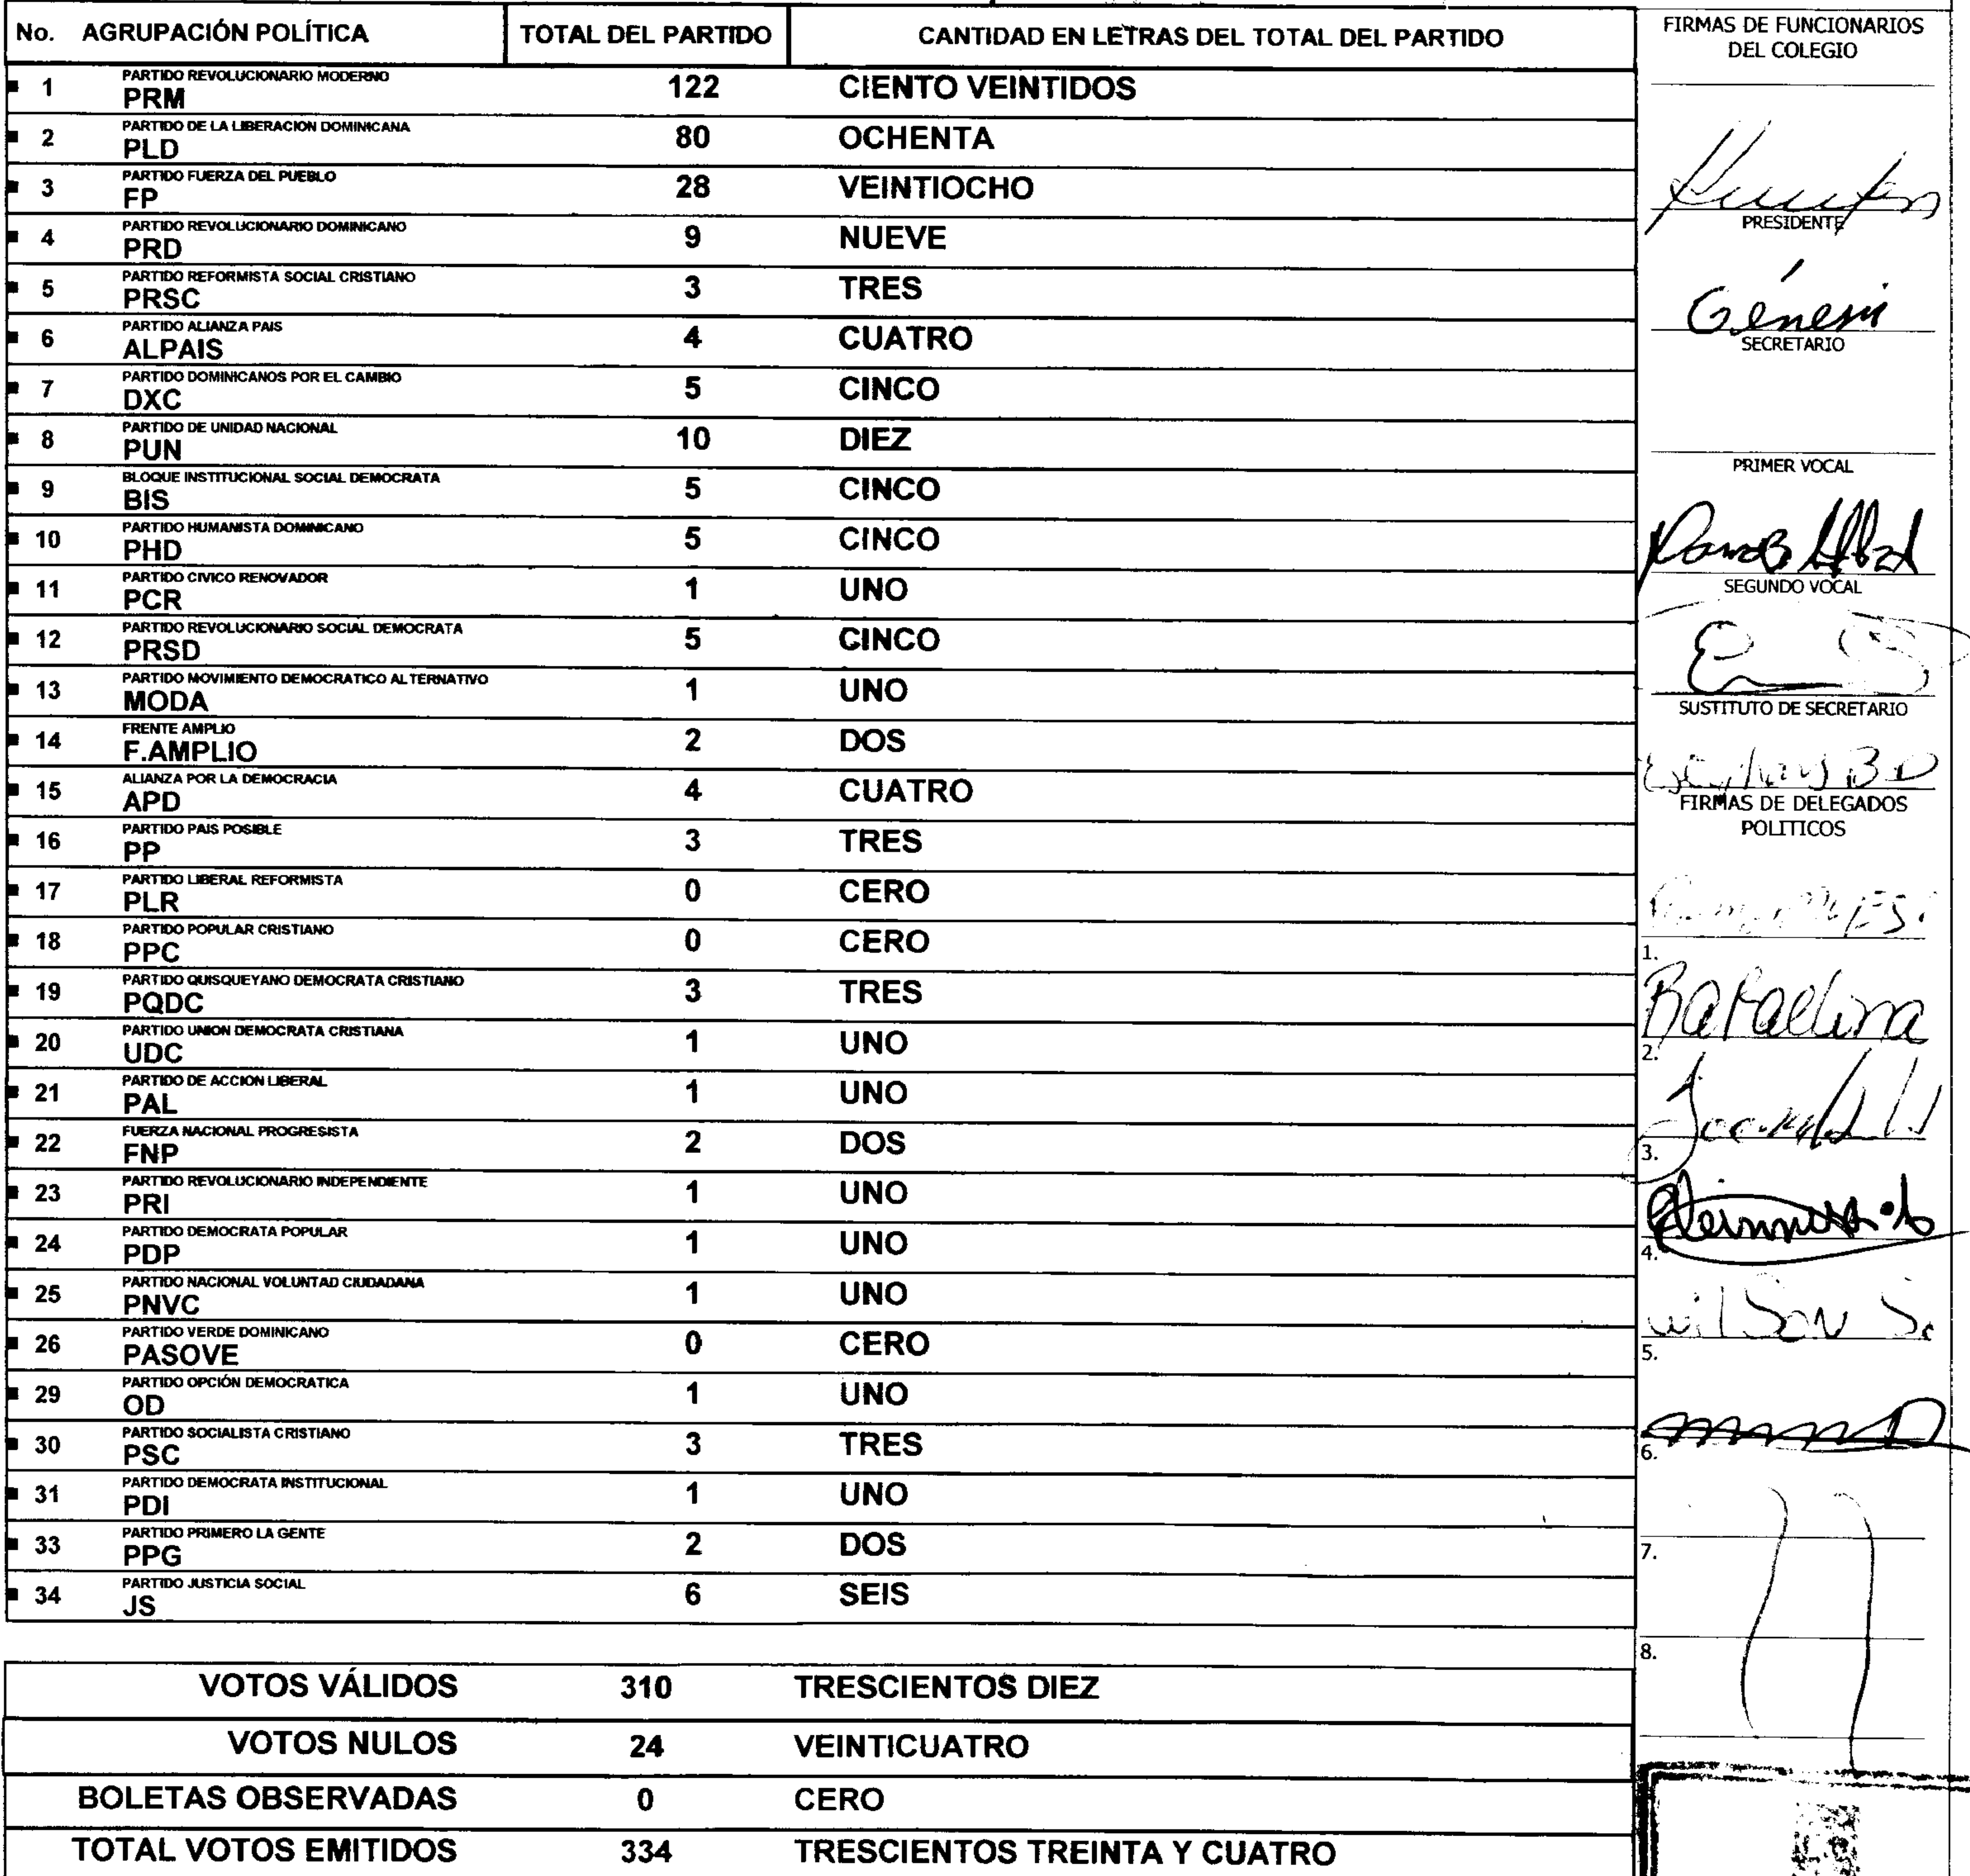 No. AGRUPACIÓN POLÍTICA TOTAL DEL PARTIDO CANTIDAD EN LETRAS DEL TOTAL DEL PARTIDO
1 PARTIDO REVOLUCIONARIO MODERNO
PRM 122 CIENTO VEINTIDOS
2 PARTIDO DE LA LIBERACION DOMINICANA
PLD 80 OCHENTA
3 PARTIDO FUERZA DEL PUEBLO
FP 28 VEINTIOCHO
4 PARTIDO REVOLUCIONARIO DOMINICANO
PRD 9 NUEVE
5 PARTIDO REFORMISTA SOCIAL CRISTIANO
PRSC 3 TRES
6 PARTIDO ALIANZA PAIS
ALPAIS 4 CUATRO
7 PARTIDO DOMINICANOS POR EL CAMBIO
DXC 5 CINCO
8 PARTIDO DE UNIDAD NACIONAL
PUN 10 DIEZ
9 BLOQUE INSTITUCIONAL SOCIAL DEMOCRATA
BIS 5 CINCO
10 PARTIDO HUMANISTA DOMINICANO
PHD 5 CINCO
11 PARTIDO CIVICO RENOVADOR
PCR 1 UNO
12 PARTIDO REVOLUCIONARIO SOCIAL DEMOCRATA
PRSD 5 CINCO
13 PARTIDO MOVIMIENTO DEMOCRATICO ALTERNATIVO
MODA 1 UNO
14 FRENTE AMPLIO
F.AMPLIO 2 DOS
15 ALIANZA POR LA DEMOCRACIA
APD 4 CUATRO
16 PARTIDO PAIS POSIBLE
PP 3 TRES
17 PARTIDO LIBERAL REFORMISTA
PLR 0 CERO
18 PARTIDO POPULAR CRISTIANO
PPC 0 CERO
19 PARTIDO QUISQUEYANO DEMOCRATA CRISTIANO
PQDC 3 TRES
20 PARTIDO UNION DEMOCRATA CRISTIANA
UDC 1 UNO
21 PARTIDO DE ACCION LIBERAL
PAL 1 UNO
22 FUERZA NACIONAL PROGRESISTA
FNP 2 DOS
23 PARTIDO REVOLUCIONARIO INDEPENDIENTE
PRI 1 UNO
24 PARTIDO DEMOCRATA POPULAR
PDP 1 UNO
25 PARTIDO NACIONAL VOLUNTAD CIUDADANA
PNVC 1 UNO
26 PARTIDO VERDE DOMINICANO
PASOVE 0 CERO
29 PARTIDO OPCIÓN DEMOCRATICA
OD 1 UNO
30 PARTIDO SOCIALISTA CRISTIANO
PSC 3 TRES
31 PARTIDO DEMOCRATA INSTITUCIONAL
PDI 1 UNO
33 PARTIDO PRIMERO LA GENTE
PPG 2 DOS
34 PARTIDO JUSTICIA SOCIAL
JS 6 SEIS
VOTOS VÁLIDOS 310 TRESCIENTOS DIEZ
VOTOS NULOS 24 VEINTICUATRO
BOLETAS OBSERVADAS 0 CERO
TOTAL VOTOS EMITIDOS 334 TRESCIENTOS TREINTA Y CUATRO
FIRMAS DE FUNCIONARIOS
DEL COLEGIO
PRESIDENTE
Génesis
SECRETARIO
PRIMER VOCAL
SEGUNDO VOCAL
SUSTITUTO DE SECRETARIO
FIRMAS DE DELEGADOS
POLITICOS
1.
2.
3.
4.
Wilson
5.
6.
7.
8.